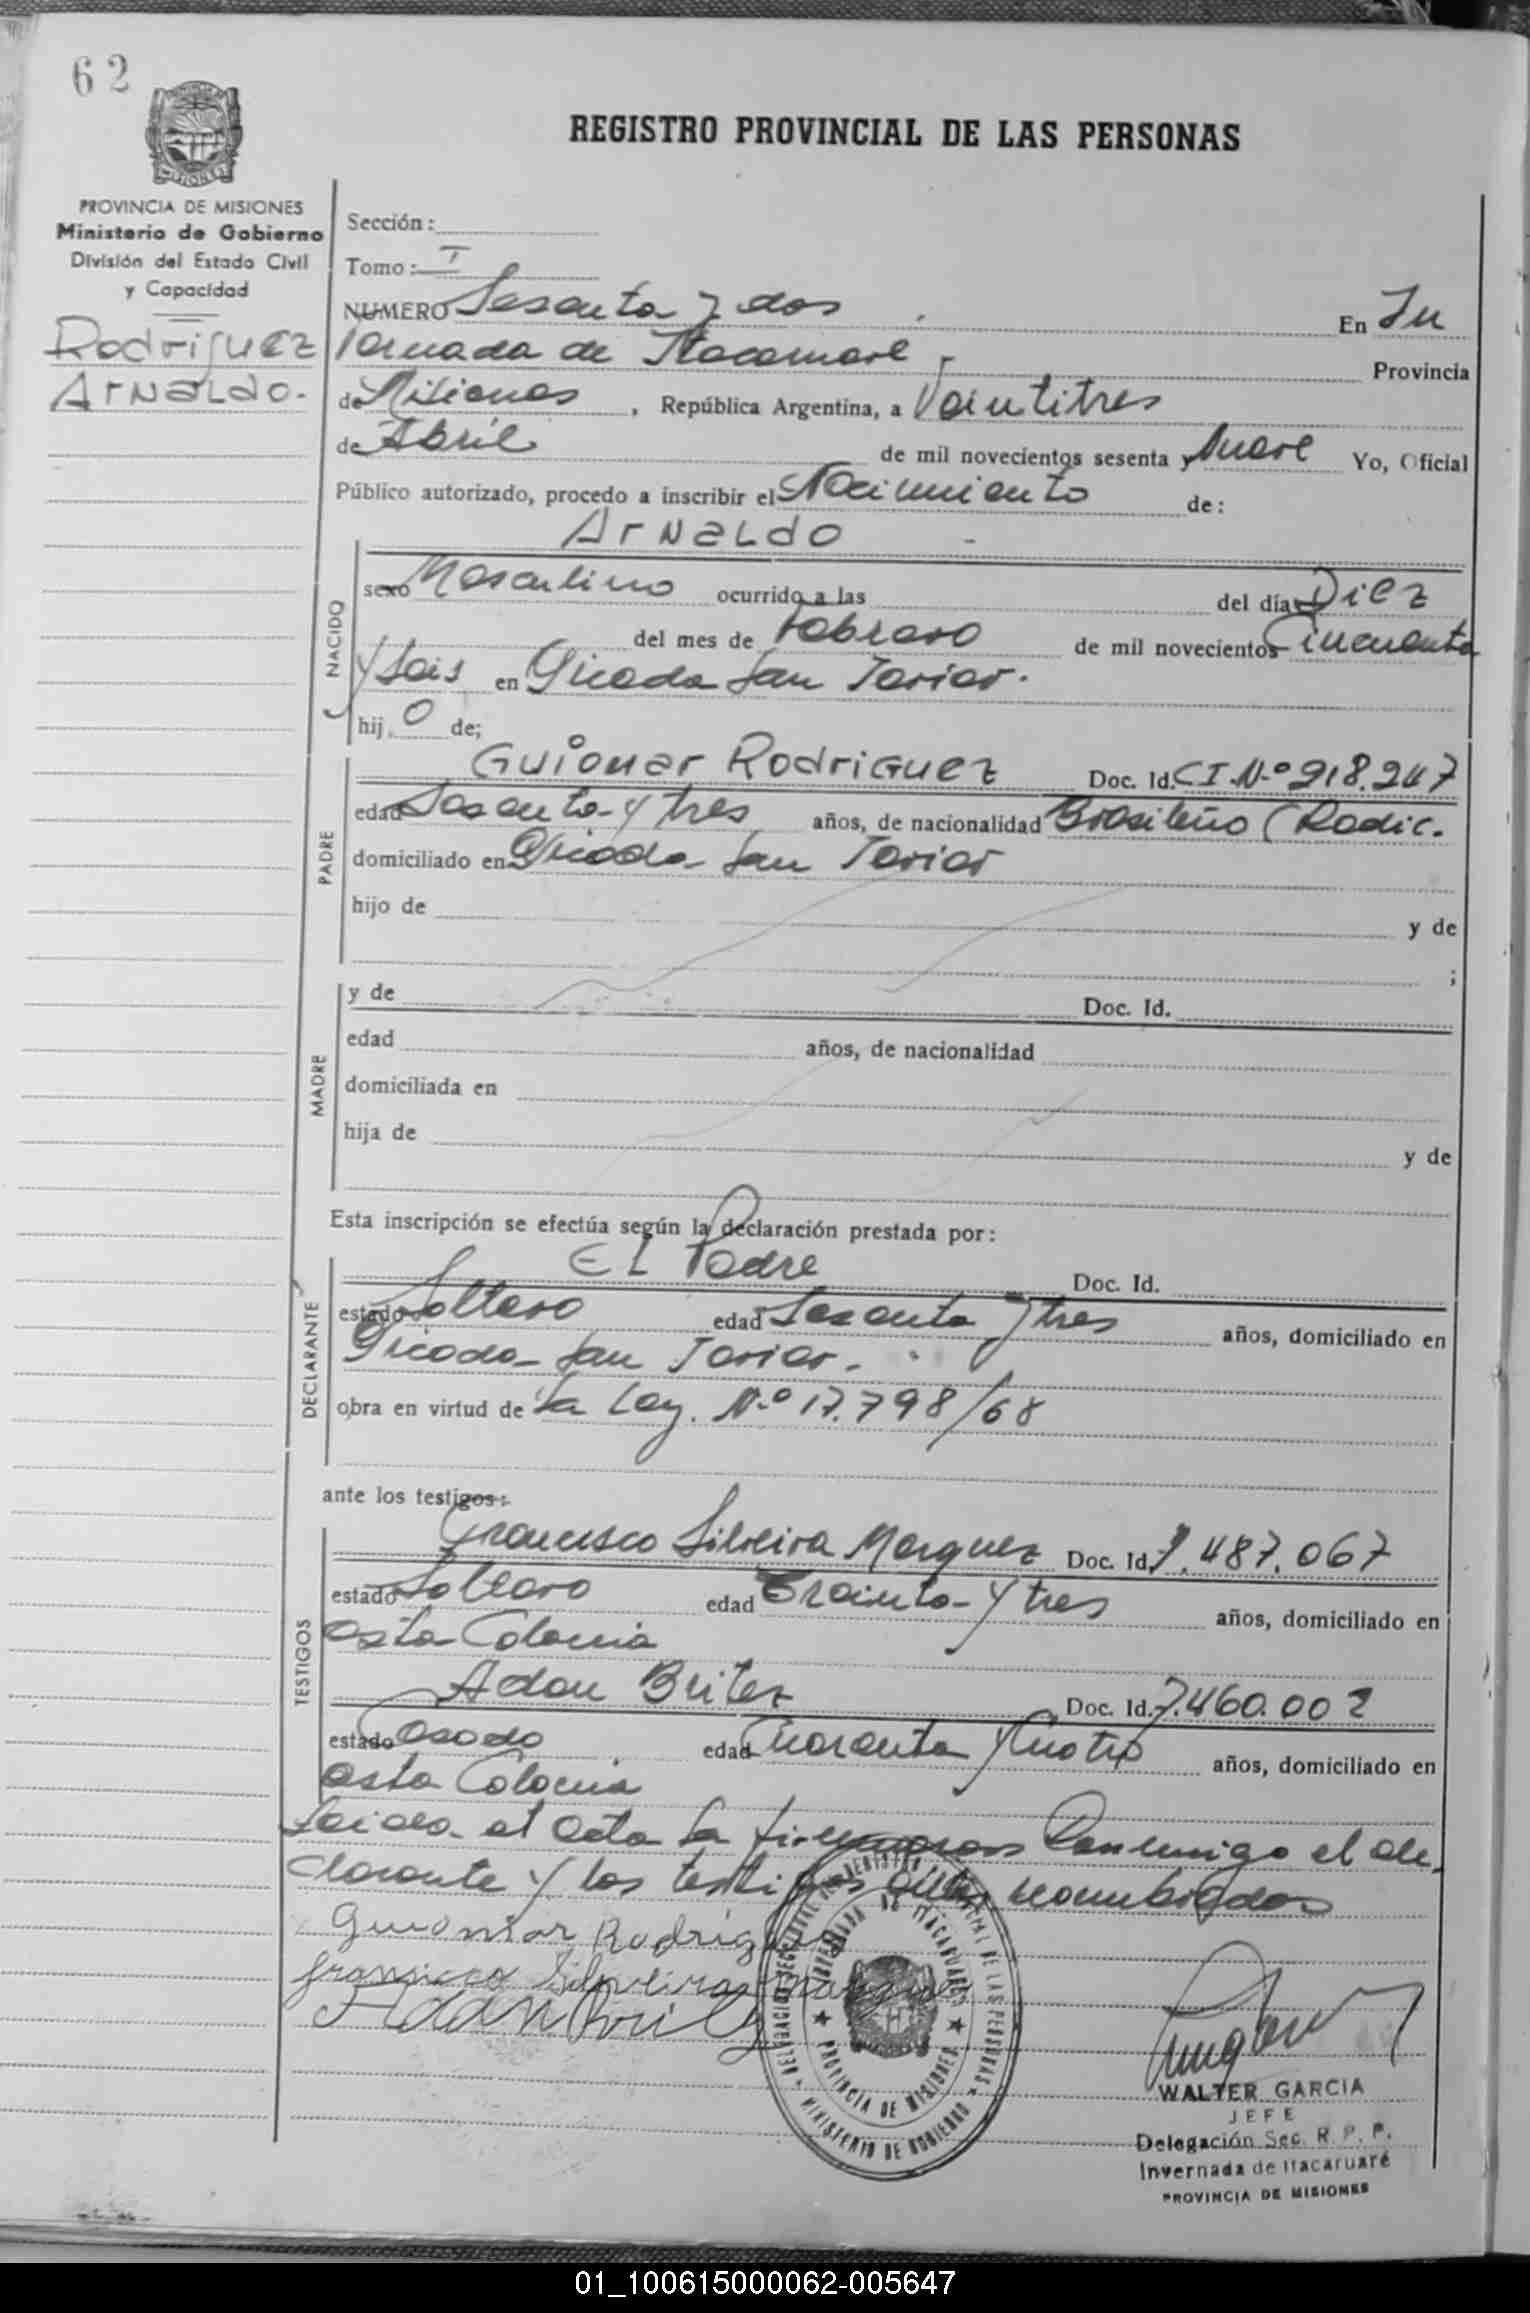 62
REGISTRO PROVINCIAL DE LAS PERSONAS
PROVINCIA DE MISIONES
Ministerio de Gobierno
División del Estado Civil
y Capacidad
Rodriguez
Arnaldo.
Sección:
Tomo: I
NUMERO Sesenta y dos En In
vernada de Itacaruare, Provincia
de Misiones, República Argentina, a Veintitres
de Abril de mil novecientos sesenta y nueve Yo, Oficial
Público autorizado, procedo a inscribir el Nacimiento de:
Arnaldo
NACIDO
sexo Masculino ocurrido a las del día Diez
del mes de Febrero de mil novecientos Cincuenta
y Seis en Picada San Javier.
hij o de;
PADRE
Guiomar Rodriguez Doc. Id. C I. N.º 918.247
edad Sesenta y tres años, de nacionalidad Brasileño (Radic.
domiciliado en Picada San Javier
hijo de y de
;
MADRE
y de Doc. Id.
edad años, de nacionalidad
domiciliada en
hija de y de
Esta inscripción se efectúa según la declaración prestada por:
DECLARANTE
El Padre Doc. Id.
estado Soltero edad Sesenta y tres años, domiciliado en
Picada San Javier.
obra en virtud de La Ley. N.º 17.798/68
ante los testigos:
TESTIGOS
Francisco Silveira Marquez Doc. Id. 7.487.067
estado Soltero edad Treinta y tres años, domiciliado en
esta Colonia
Adan Britez Doc. Id. 7.460.002
estado Casado edad Cuarenta y Cuatro años, domiciliado en
esta Colonia
Leida el acta la firmaron Conmigo el de
clarante y los testigos nombrados
Guiomar Rodriguez
Silveira
Adan
DELEGACION SECCIONAL DEL REGISTRO PROVINCIAL DE LAS PERSONAS
INVERNADA DE ITACARUARE
PROVINCIA DE MISIONES
MINISTERIO DE GOBIERNO
WALTER GARCIA
JEFE
Delegación Sec. R. P. P.
Invernada de Itacaruaré
PROVINCIA DE MISIONES
01_100615000062-005647